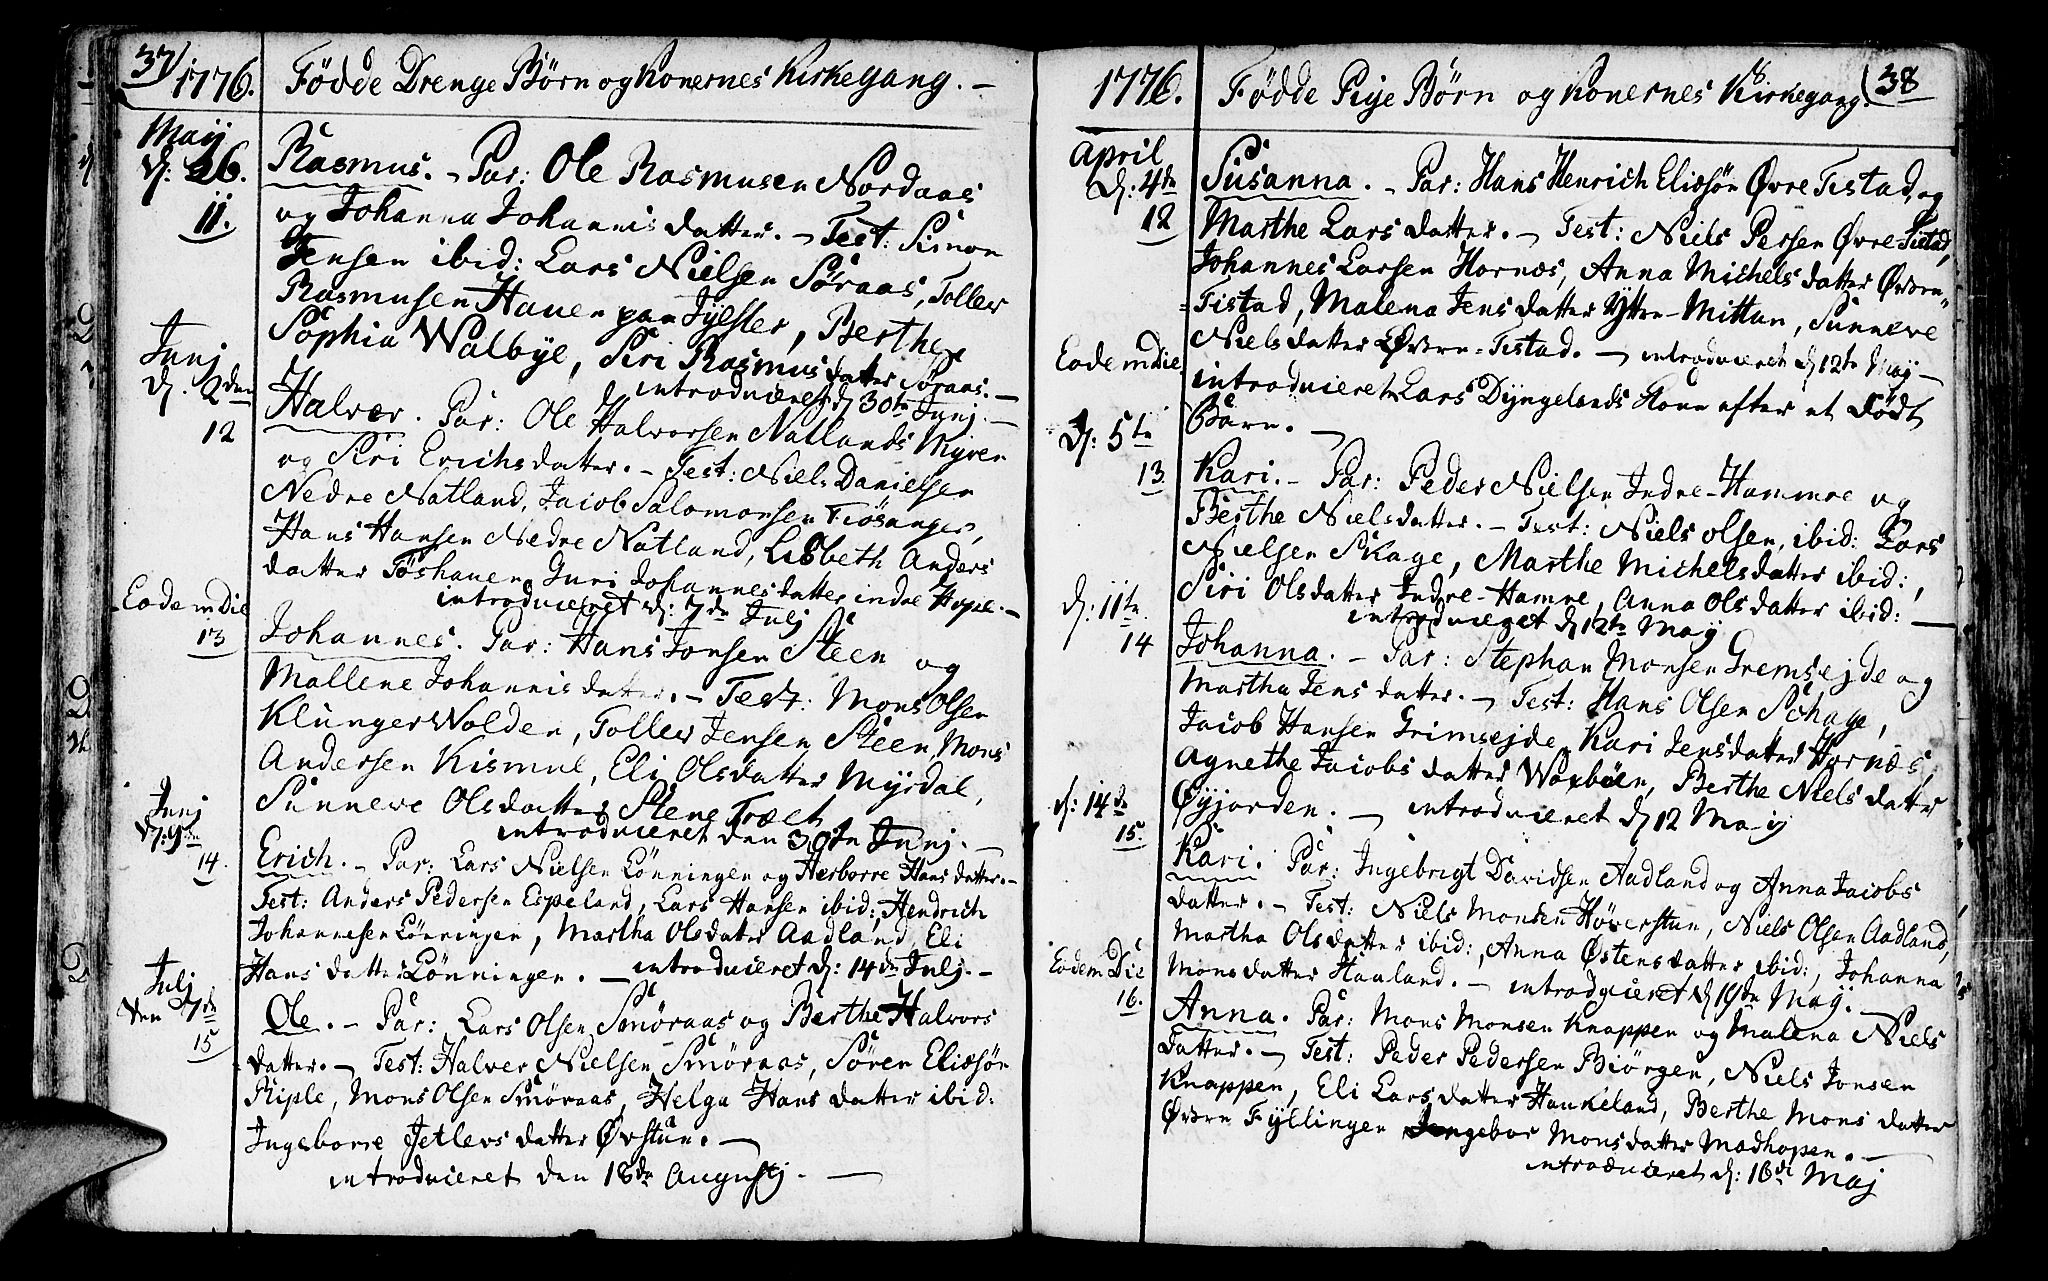 37
1776. Födde Drenge Börn og Konernes Kirkegang. -
Maij
d: 26.
11.
Rasmus. - Par: Ole Rasmusen Nordaas
og Johanna Johannisdatter. - Test: Simon
Jensen ibid: Lars Nielsen Söraas, Tollev
Rasmusen Hauen paa Jyelster, Berthe
Sophia Walbye, Siri Rasmusdatter Söraas. -
introducieret d 30te Junj. -
Junj
d. 2den
12
Halvor. Par: Ole Halvorsen Natlands Myren
og Siri Erichsdatter. - Test: Niels Danielsen
Nedre Natland, Jacob Salomonsen Tiösanger,
Hans Hansen Nedre Natland, Lisbeth Anders
datter Töshauen, Guri Johannesdatter indre Hope. -
introducieret d: 7de Julj
Eodem Die
13
Johannes. Par: Hans Jonsen Steen og
Mallene Johannisdatter. - Test: Mons Olsen
Klungerwolden, Tollev Jensen Steen, Mons
Andersen Kismul, Eli Olsdatter Myrdal,
Sunneve Olsdatter Stene Træet
introducieret den 30te Junj. -
Junj
d: 9de
14.
Erich. - Par: Lars Nielsen Lönningen og Herborre Hansdatter. -
Test: Anders Pedersen Espeland, Lars Hansen ibid:, Hendrich
Johannesen Lönningen, Martha Olsdatter Aadland, Eli
Hansdatter Lönningen. - introducieret d: 14de Julj. -
Julj
den 7de
15
Ole. - Par: Lars Olsen Smöraas og Berthe Halvors
datter. - Test: Halver Nielsen Smöraas, Sören Eliæsön
Riple, Mons Olsen Smöraas, Helga Hansdatter ibid:
Ingeborre Jetlevsdatter Övstun. -
introducieret den 18de Augustj. -
1776. Födde Pige Börn og Konernes Kirkegang.
38
April
d: 4de
12
Susanna. - Par: Hans Henrich Eliæsön Øvre Tistad, og
Marthe Larsdatter. - Test: Niels Persen Øvre Tistad,
Johannes Larsen Hornæs, Anna Michelsdatter Øvren-
Tistad, Malena Jensdatter Ytre-Mittun, Sunneve
Nielsdatter Øvren-Tistad. - introducieret d 12te Maj -
Eodem Die
introducieret Lars Dyngelands Kone efter et Födt
Barn. -
d: 5te
13
Kari. - Par: Peder Nielsen Indre-Hammre og
Berthe Nielsdatter. - Test: Niels Olsen, ibid: Lars
Nielsen Skage, Marthe Michelsdatter ibid:,
Siri Olsdatter Indre-Hamre, Anna Olsdatter ibid: -
introducieret d 12te May
d: 11te
14
Johanna. - Par: Stephan Monsen Gremsejde og
Martha Jensdatter. - Test: Hans Olsen Schage,
Jacob Hansen Grimsejde, Kari Jensdatter Hornæs,
Agnethe Jacobsdatter Warböen, Berthe Nielsdatter
Øyjorden. - introducieret d 12 Maij
d: 14de
15.
Kari. Par: Ingebrigt Davidsen Aadland og Anna Jacobs
datter. - Test: Niels Monsen Höverstun, Niels Olsen Aadland,
Martha Olsdatter ibid:, Anna Østensdatter ibid:, Johanna
Monsdatter Haaland. - introducieret d 19de May. -
Eodem Die
16.
Anna. Par: Mons Monsen Knappen og Malena Niels
datter. - Test: Peder Pedersen Biörgen, Niels Jonsen
Knappen, Eli Larsdatter Haukeland, Berthe Monsdatter
Øvren Fyllingen, Ingebor Monsdatter Madhopen. -
introducieret d: 16de Maj